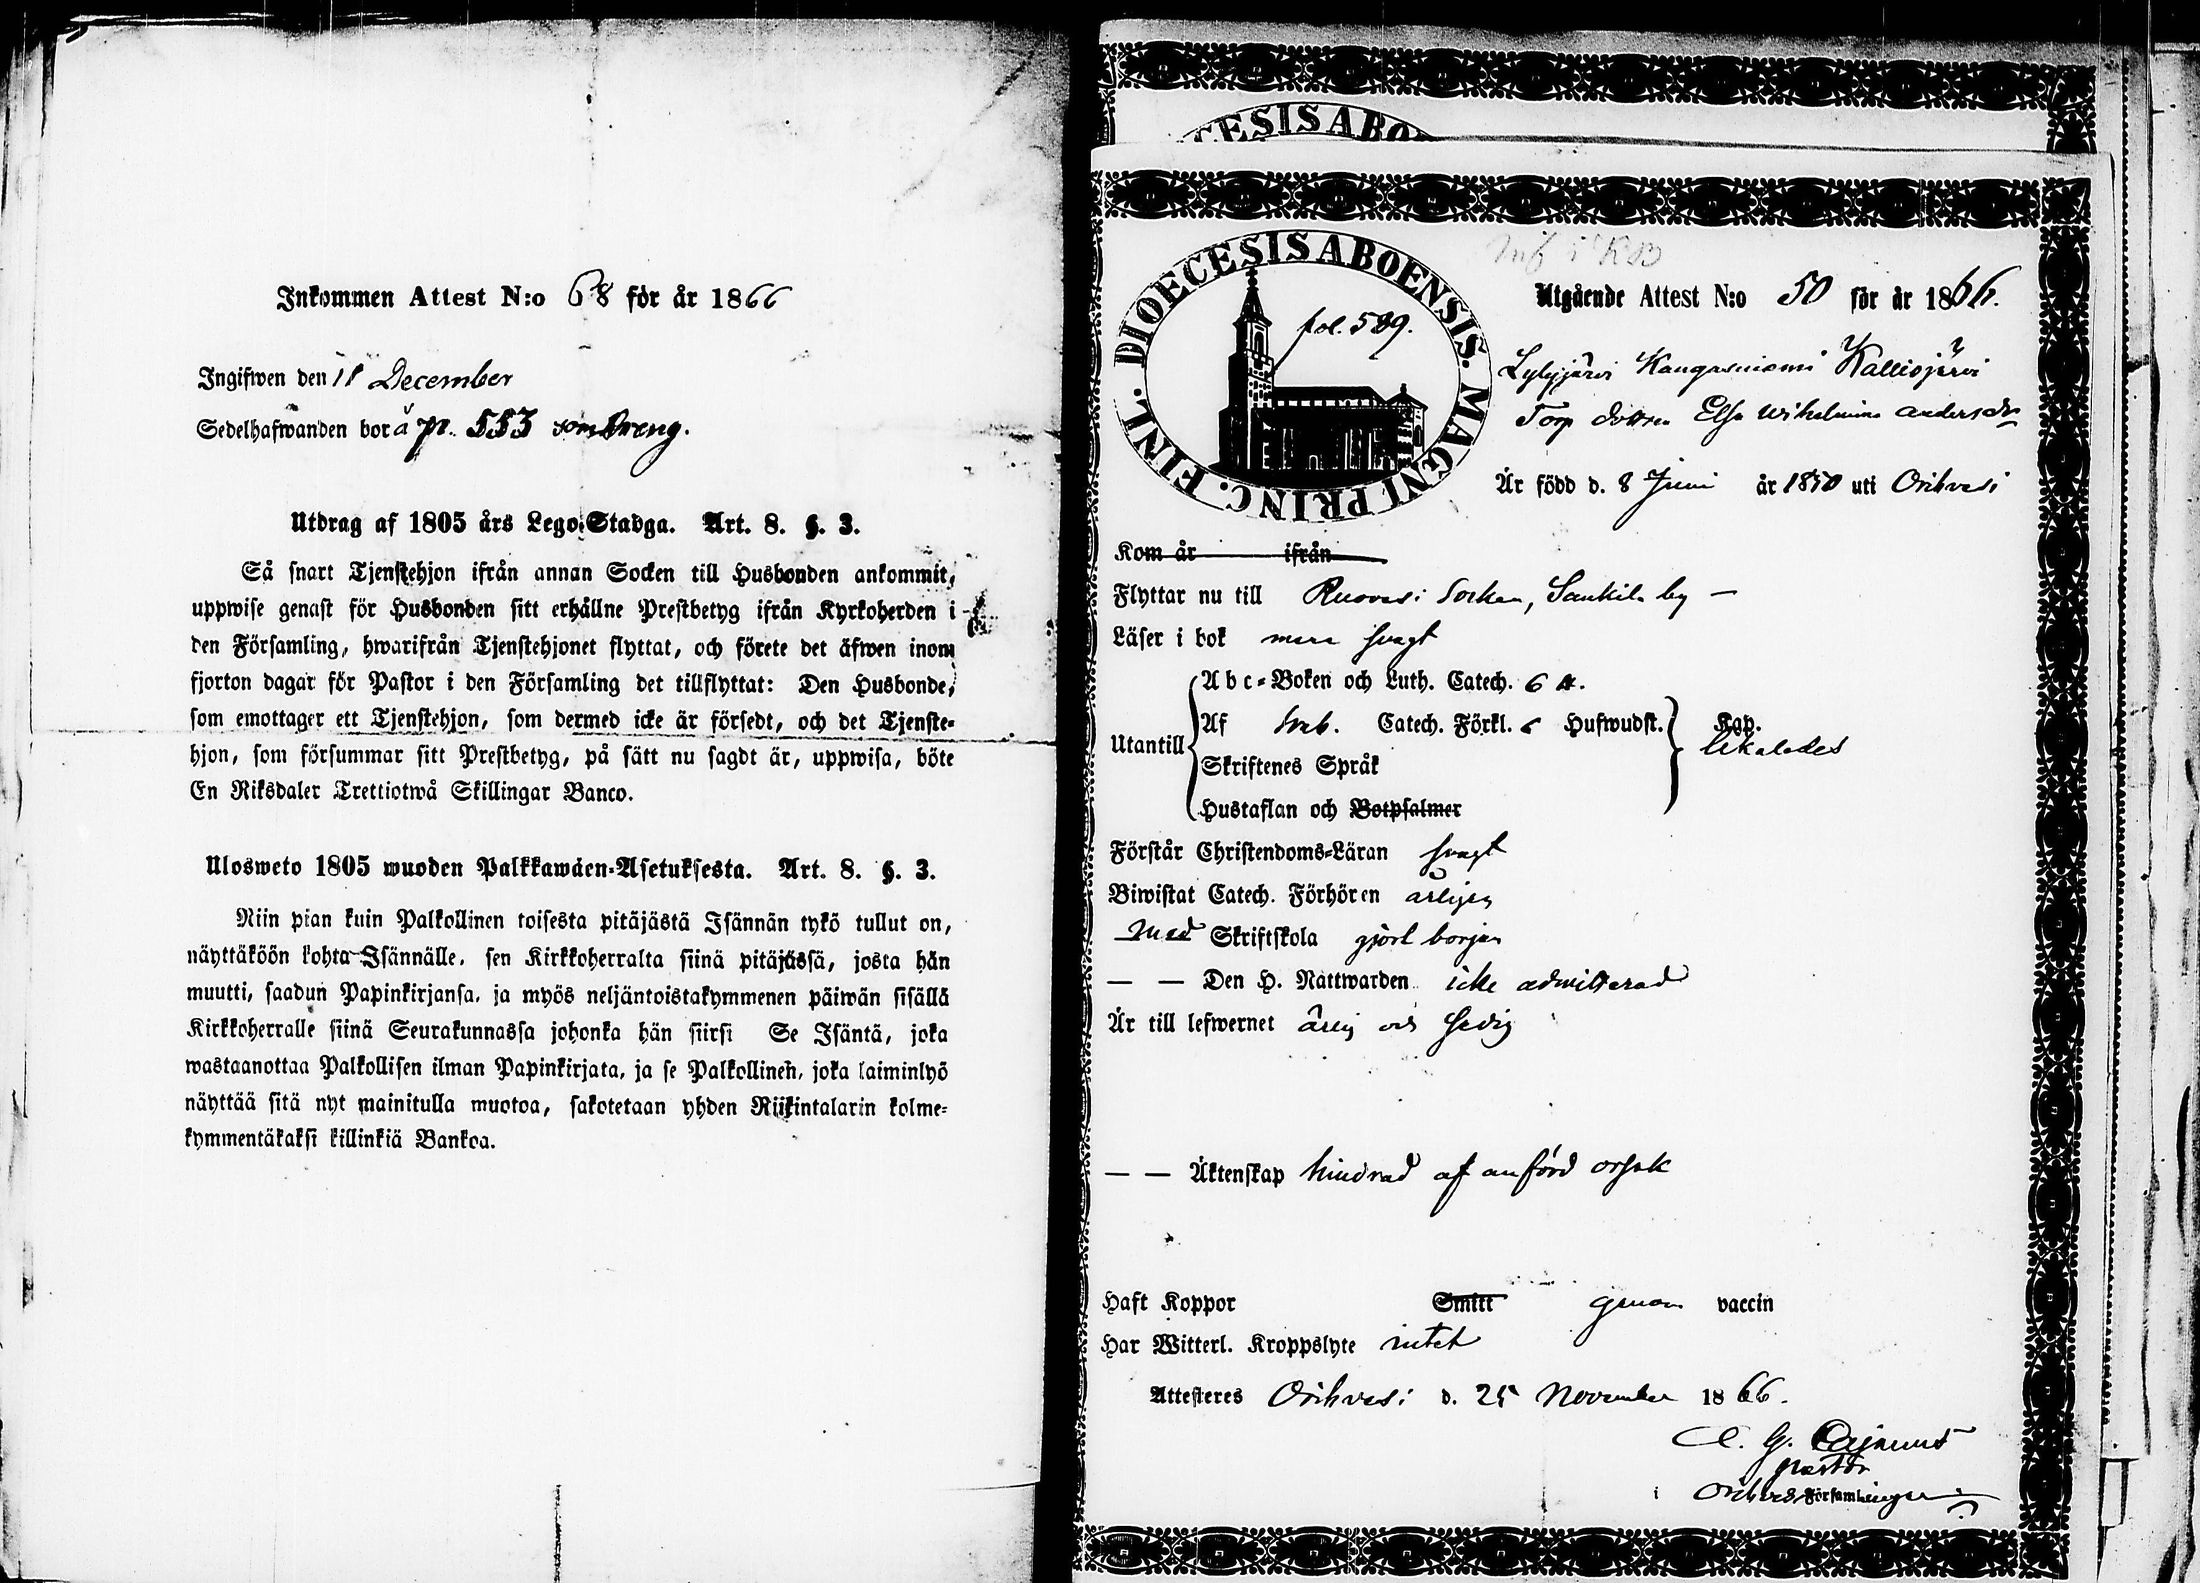 Inkommen Attest N:o 68 för år 1866
Ingifwen den 11 December
Sedelhafwanden bor å p. 553 som Dreng.
Utdrag af 1805 års Lego-Stadga. Art. 8. §. 3.
Så snart Tjenstehjon ifrån annan Socken till Husbonden ankommit,
uppwise genast för Husbonden sitt erhållne Prestbetyg ifrån Kyrkoherden i
den Församling, hwarifrån Tjenstehjonet flyttat, och förete det äfwen inom
fjorton dagar för Pastor i den Församling det tillflyttat: Den Husbonde,
som emottager ett Tjenstehjon, som dermed icke är försedt, och det Tjenste-
hjon, som försummar sitt Prestbetyg, på sätt nu sagdt är, uppwisa, böte
En Riksdaler Trettiotwå Skillingar Banco.
Ulosweto 1805 wuoden Palkkawäen-Asetuksesta. Art. 8. §. 3.
Niin pian kuin Palkollinen toisesta pitäjästä Isännän tykö tullut on,
näyttäköön kohta Isännälle, sen Kirkkoherralta siinä pitäjässä, josta hän
muutti, saadun Papinkirjansa, ja myös neljäntoistakymmenen päiwän sisällä
Kirkkoherralle siinä Seurakunnassa johonka hän siirsi Se Isäntä, joka
wastaanottaa Palkollisen ilman Papinkirjata, ja se Palkollinen, joka laiminlyö
näyttää sitä nyt mainitulla muotoa, sakotetaan yhden Riikintalarin kolme-
kymmentäkaksi killinkiä Bankoa.
CESIS ABO
DIOECESIS ABOENSIS. MAGNI PRINC. FINL.
fol. 589.
Utgående Attest N:o 50 för år 1866.
Lylyjärvi Kangasniemi Kalliojärvi
Torp dottren Elsa Wilhelmina Andersdr
Är född d. 8 Juni år 1850 uti Orihvesi
Kom år ifrån
Flyttar nu till Ruovesi Socken, Sankila by —
Läser i bok mera svagt
Utantill
Abc-Boken och Luth. Catech. 6 st.
Af Sveb. Catech. Förkl. 6 Hufwudst. Kap.
Skriftenes Språk
likaledes
Hustaflan och Botpsalmer
Förstår Christendoms-Läran svagt
Biwistat Catech. Förhören årligen
med Skriftskola gjort början
— — Den H. Nattwarden icke admitterad
Är till lefwernet ärlig och sedig
— — Äktenskap hindrad af anförd orsak
Haft Koppor Smitt genom vaccin
Har Witterl. Kroppslyte intet
Attesteres Orihvesi d. 25 November 1866.
C. G. Cajanus
pastor
i Orihvesi Församlingen